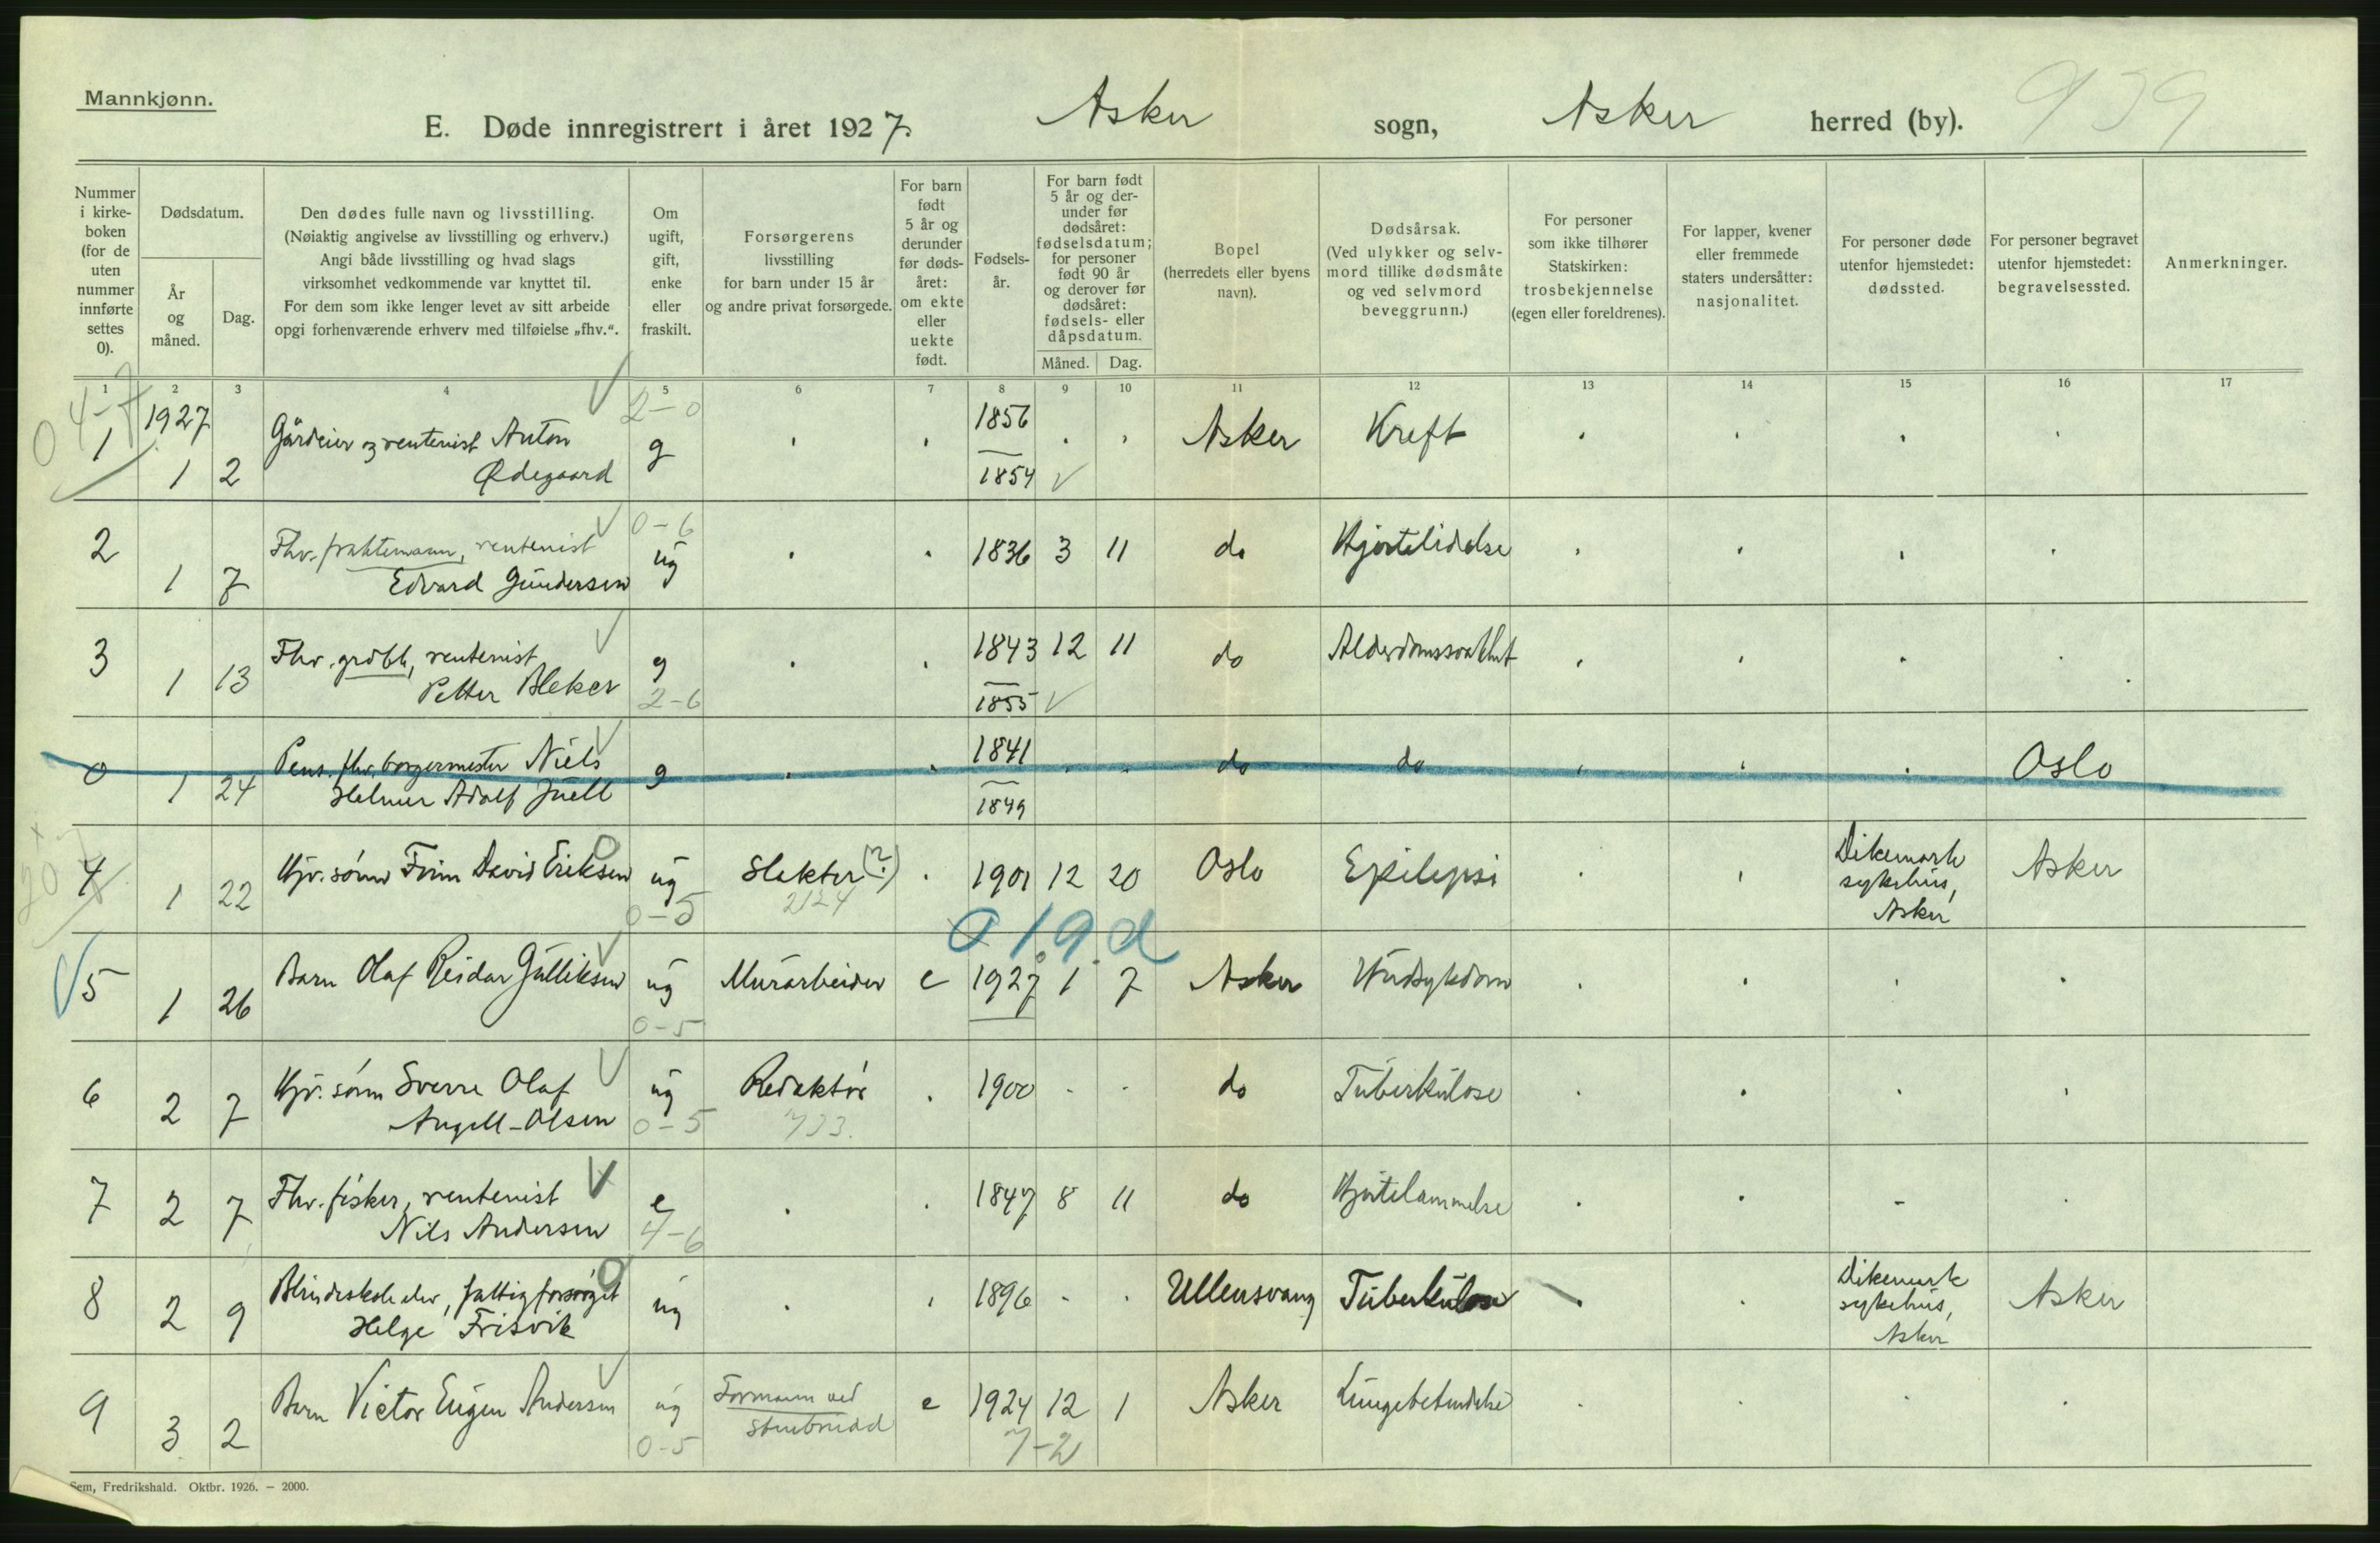 Mannkjønn.
E. Døde innregistrert i året 1927. Asker sogn, Asker herred (by). 939
Nummer i kirke-boken (for de uten nummer innførte settes 0).
Dødsdatum.
År og måned.
Dag.
Den dødes fulle navn og livsstilling.
(Nøiaktig angivelse av livsstilling og erhverv.)
Angi både livsstilling og hvad slags
virksomhet vedkommende var knyttet til.
For dem som ikke lenger levet av sitt arbeide
opgi forhenværende erhverv med tilføielse „fhv.“.
Om ugift, gift, enke eller fraskilt.
Forsørgerens
livsstilling
for barn under 15 år
og andre privat forsørgede.
For barn født 5 år og derunder før døds-året: om ekte eller uekte født.
Fødsels-år.
For barn født 5 år og der-under før dødsåret: fødselsdatum; for personer født 90 år og derover før dødsåret: fødsels- eller dåpsdatum.
Måned. Dag.
Bopel
(herredets eller byens
navn).
Dødsårsak.
(Ved ulykker og selv-
mord tillike dødsmåte
og ved selvmord
beveggrunn.)
For personer
som ikke tilhører
Statskirken:
trosbekjennelse
(egen eller foreldrenes).
For lapper, kvener
eller fremmede
staters undersåtter:
nasjonalitet.
For personer døde
utenfor hjemstedet:
dødssted.
For personer begravet
utenfor hjemstedet:
begravelsessted.
Anmerkninger.
1 2 3 4 5 6 7 8 9 10 11 12 13 14 15 16 17
0 4-7 2-0
1 1927 1 2 Gårdeier og rentenist Anton Ødegaard g . . 1856 1854 . . Asker Kreft . . . .
0-6
2 1 7 Fhv. fraktemann, rentenist Edvard Gundersen ug . . 1836 3 11 do Hjertelidelse . . . .
3 1 13 Fhv. grdbr, rentenist Petter Bleker g . . 1843 12 11 do Alderdomssvakhet . . . .
2-6 1855
0 1 24 Pens. fhv. borgermester Niels Helmer Adolf Juell g . . 1841 1849 . . do do . . . Oslo
4 1 22 Hjv. sønn Finn David Eriksen ug Slakter (?) . 1901 12 20 Oslo Epilepsi . . Dikemark sykehus, Asker Asker
0-5 2124
0 1 9 d
5 1 26 Barn Olaf Reidar Gulliksen ug Murarbeider e 1927 1 7 Asker Hudsykdom . . . .
0-5
6 2 7 Hjv. sønn Sverre Olaf Angell-Olsen ug Redaktør . 1900 - - do Tuberkulose . . . .
0-5 733.
7 2 7 Fhv. fisker, rentenist Nils Andersen e . . 1847 8 11 do Hjertelammelse . . - .
4-6
8 2 9 Blindeskole elev, fattigforsørget Helge Frisvik ug . . 1896 - . Ullensvang Tuberkulose . . Dikemark sykehus, Asker Asker
9 3 2 Barn Victor Eugen Andersen ug Formann ved stenbrudd e 1924 12 1 Asker Lungebetendelse . . . .
0-5 7-2
Sem, Fredrikshald. Oktbr. 1926. - 2000.